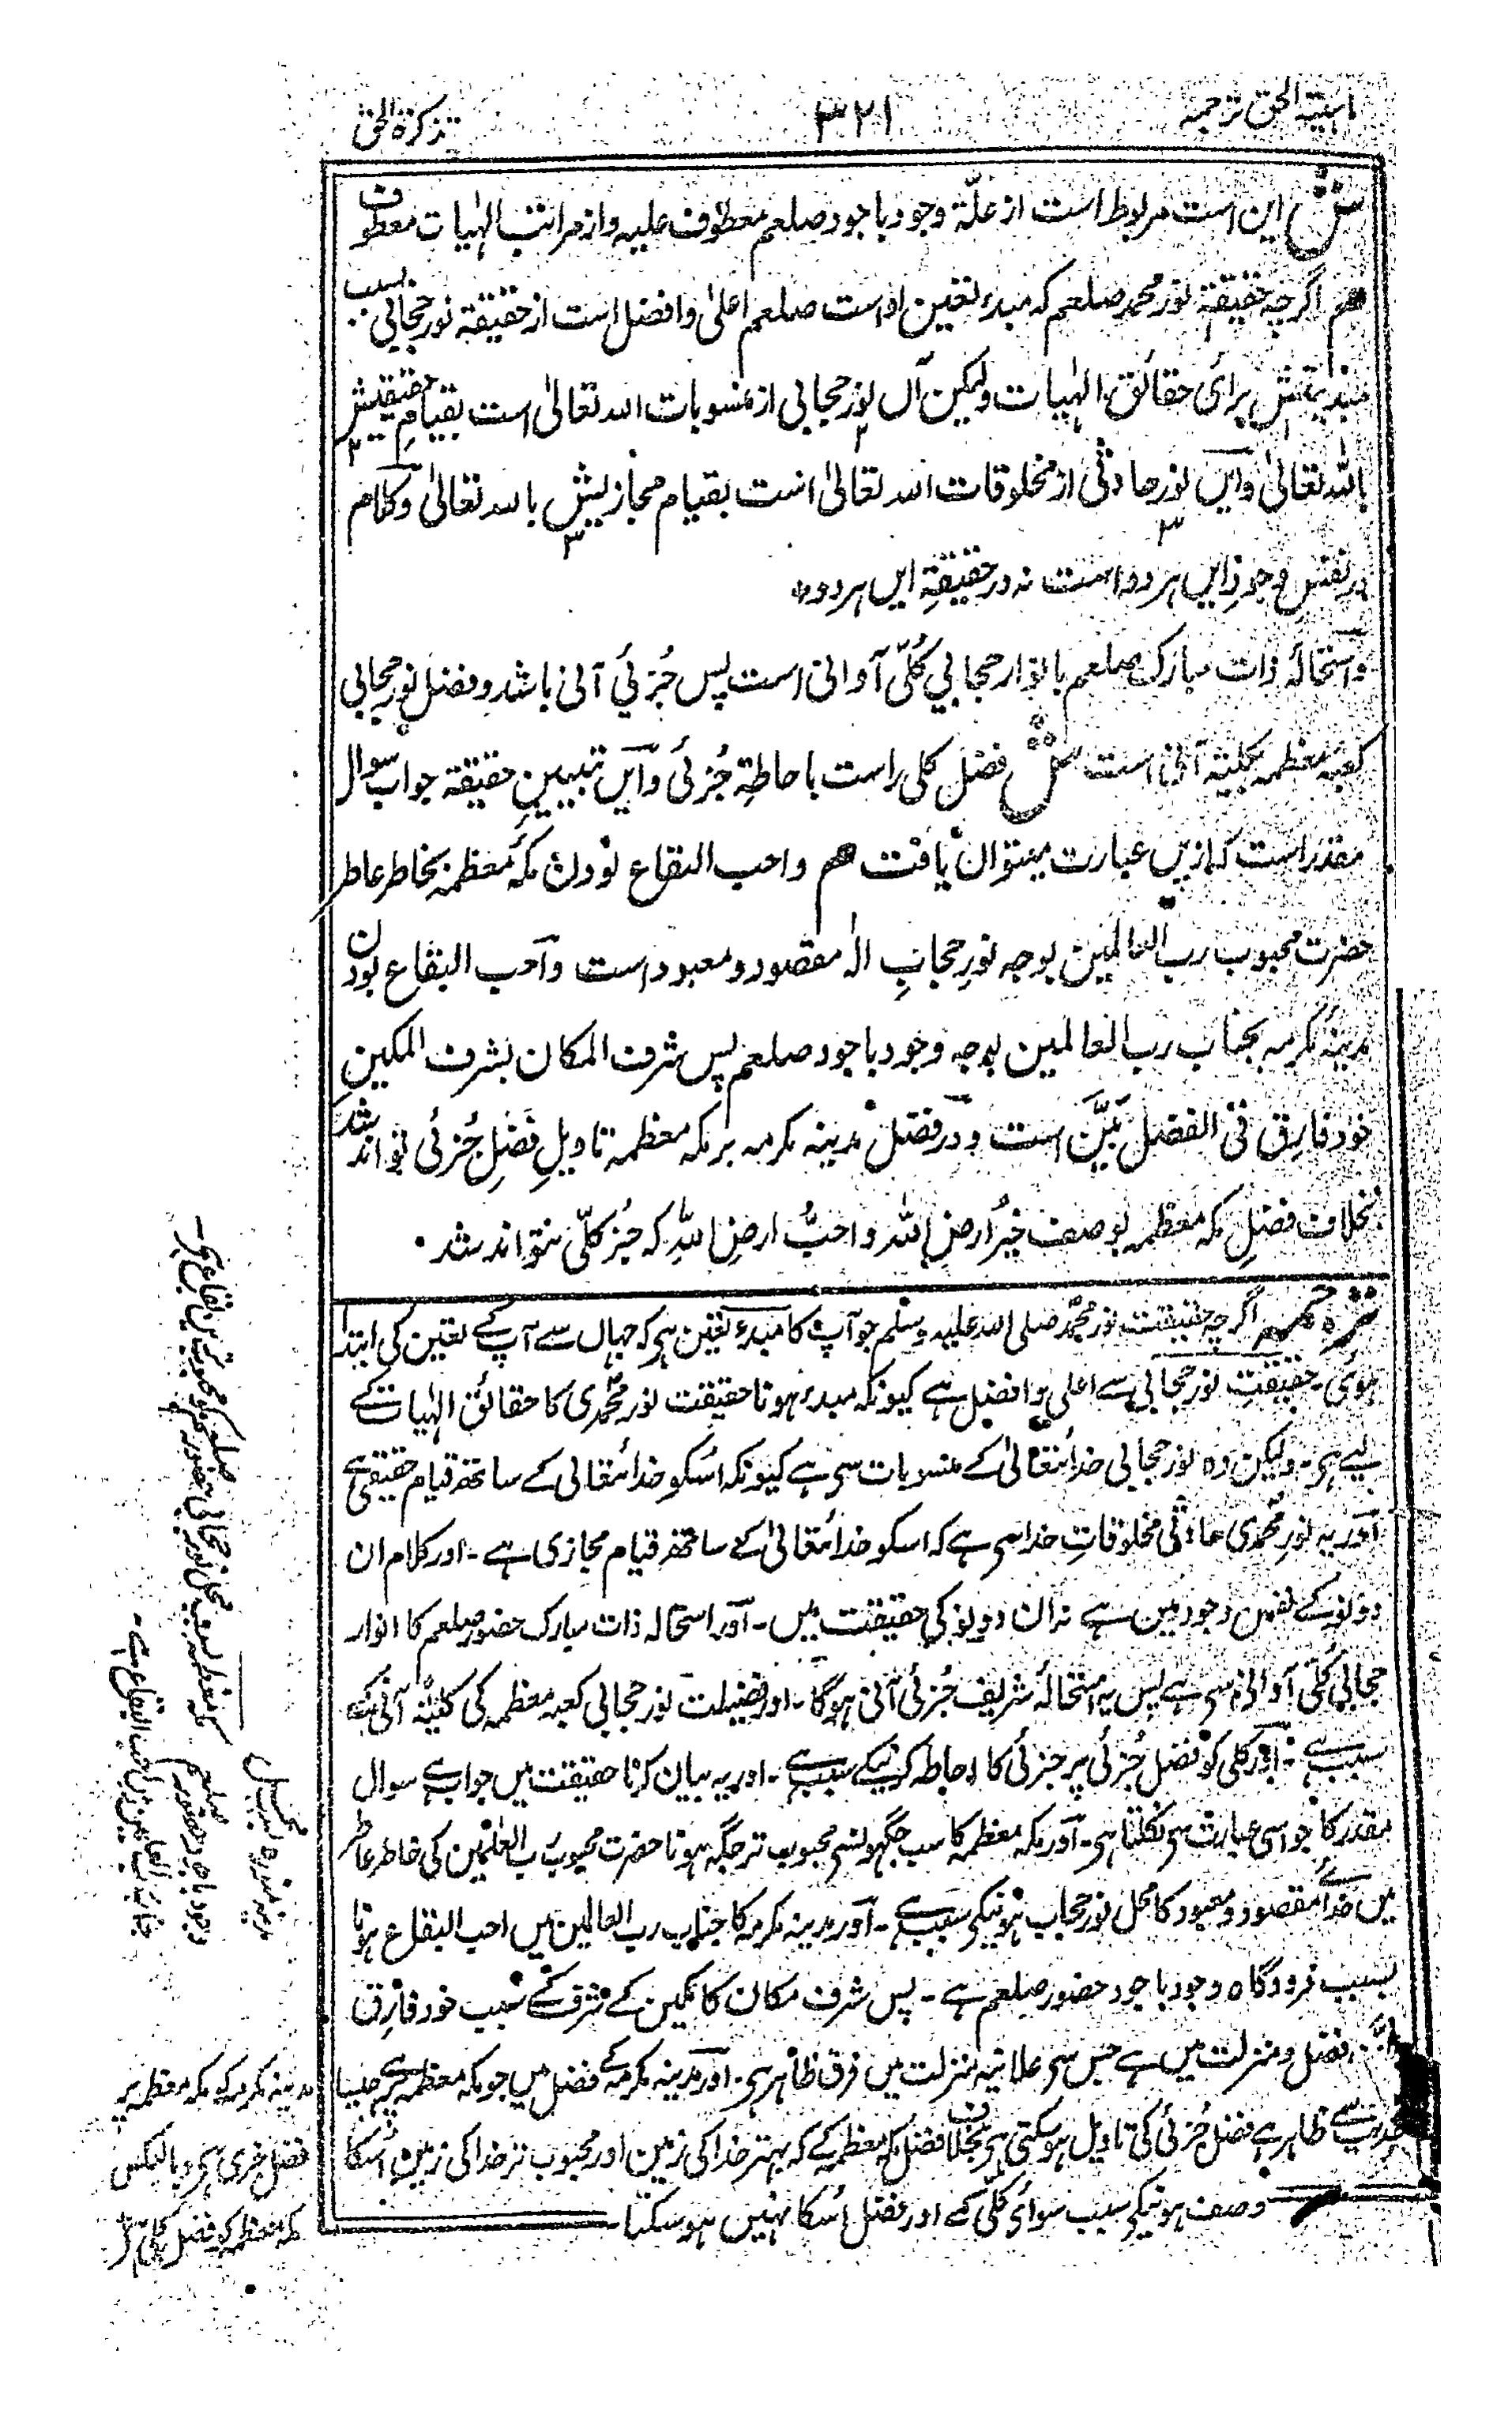 ماہیۃ الحق ترجمہ
۳۲۱
تذکرۃ الحق
ش این است مربوط است از علّۃ وجود باجود صلعم معطوف علیہ و از مراتب الٰہیات معطوف
ھم اگرچہ حقیقۃ نور محمد صلعم کہ مبدء تعین اوست صلعم اعلیٰ و افضل است از حقیقۃ نور حجابی بسبب
مبدیتش برای حقائق الٰہیات ولیکن آں نور حجابی از منسوبات اللہ تعالیٰ است بقیام حقیقیش
باللہ تعالیٰ وایں نور حادثی از مخلوقات اللہ تعالیٰ است بقیام مجازیش باللہ تعالیٰ وکلام
در نفس وجود ایں ہر دو است نہ در حقیقۃ ایں ہر دو
واستحالۂ ذات مبارک صلعم بانوار حجابی کُلّی آوانی است پس جُزئی آنی باشد وفضل نور حجابی
کعبہ معظمہ بکلیتہ آنی است ش فضل کلی راست باحاطۃ جُزئی وایں تبیین حقیقۃ جواب سوال
مقدر است کہ ازیں عبارت میتواں یافت ھم واحب البقاع بودن مکہ معظمہ بخاطر عاطر
حضرت محبوب رب العالمین بوجہ نور حجابِ الٰہ مقصود ومعبود است واحب البقاع بودن
مدینہ مکرمہ بجناب رب العالمین بوجہ وجود باجود صلعم پس شرف المکان بشرف المکین
خود فارق فی الفضل بَیّن است ودر فضل مدینہ مکرمہ بر مکہ معظمہ تاویلِ فضلِ جُزئی تواند شد
بخلاف فضلِ مکہ معظمہ بوصف خیرُ ارضِ اللہ واحبُّ ارضِ اللہِ کہ جُز کلّی نتواند شد
ترجمہ اگرچہ حقیقت نور محمد صلی اللہ علیہ وسلم جو آپ کا مبدء تعین ہی کہ جہاں سے آپ کے تعین کی ابتدا
ہوئی حقیقت نور حجابی سے اعلی و افضل ہے کیونکہ مبدء ہونا حقیقت نور محمدی کا حقائق الٰہیات کے
لیے ہی۔ ولیکن وہ نور حجابی خدائتعالیٰ کے منسوبات سی ہے کیونکہ اُسکو خدائتعالی کے ساتھ قیام حقیقی ہے
اور یہ نور محمدی حادثی مخلوقاتِ خدا سی ہے کہ اسکو خدائتعالیٰ کے ساتھ قیام مجازی ہے۔ اور کلام ان
دونو کے نفس وجود میں ہے نہ ان دونو کی حقیقت میں۔ اور استحالہ ذات مبارک حضور صلعم کا انوار
حجابی کُلّی آوانی سی ہے پس یہ استحالۂ شریف جُزئی آنی ہوگا۔ اور فضیلت نور حجابی کعبہ معظمہ کی کلیتۂ آنی کے
سبب ہے۔ اور کلی کو فضل جُزئی پر جزئی کا احاطہ کرنیکے سبب ہے۔ اور یہ بیان کرنا حقیقت میں جواب ہے سوال
مقدر کا جو اسی عبارت سی نکلتا ہی۔ اور مکہ معظمہ کا سب جگہونسی محبوب تر جگہ ہونا حضرت محبوب رب العلمین کی خاطر عاطر
میں خدائے مقصود ومعبود کا محل نور حجاب ہونیکی سبب ہے۔ اور مدینہ مکرمہ کا جناب رب العالمین میں احب البقاع ہونا
بسبب فرودگاہ وجود باجود حضور صلعم ہے۔ پس شرف مکان کا مکین کے شرف کے سبب خود فارق
فضل ومنزلت میں ہے جس سی علانیہ منزلت میں فرق ظاہر ہی۔ اور مدینہ مکرمہ کے فضل میں جو مکہ معظمہ پر ہے جیسا
حدیث سے ظاہر ہے فضل جُزئی کی تاویل ہوسکتی ہی بخلاف فضل مکہ معظمہ کے کہ بہتر خدا کی زمین اور محبوب تر خدا کی زمین اُسکا
وصف ہونیکی سبب سوائے کلّی کے اور فضل اُسکا نہیں ہوسکتا۔
مدینہ منورہ بسبب
وجود باجود حضور صلعم
جناب رب العالمین میں احب البقاع ہے۔
مدینہ مکرمہ کو مکہ معظمہ پر
فضل جزئی ہی و بالعکس
مکہ معظمہ کو فضل کلی